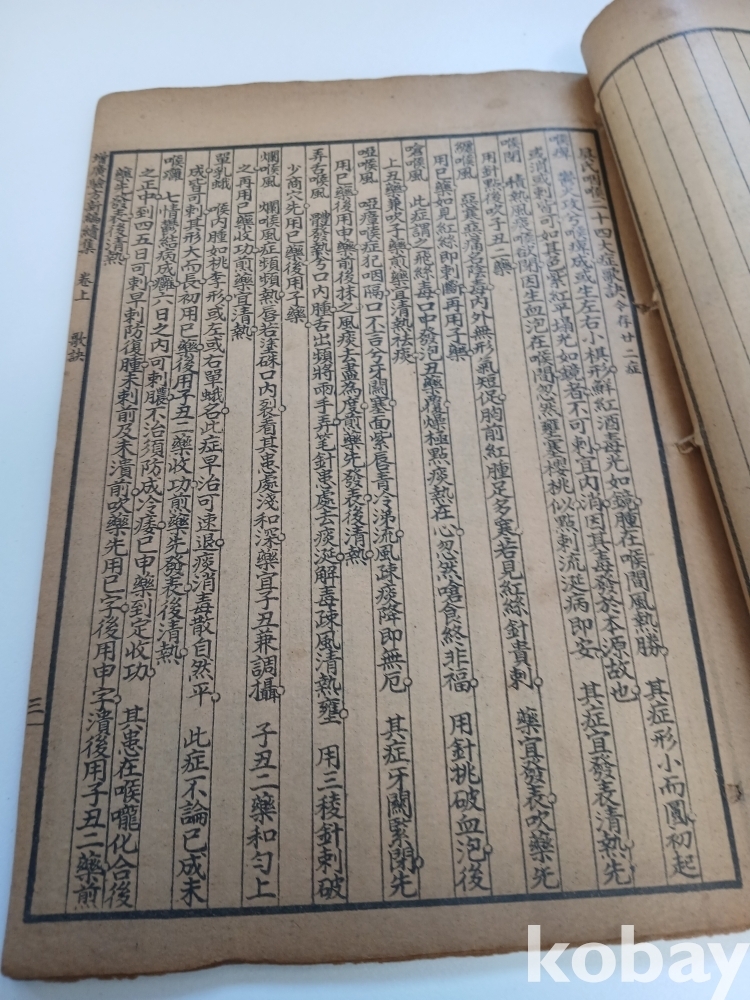 吳氏咽喉二十四大症歌訣今存廿二症
喉痺 攻兮喉痺成或生左右小棋形鮮紅酒毒光如鏡腫在喉間風熱勝 其症形小而圓初起
或消風刺皆可如其色紫紅平塌光如鏡者不可刺宜內消因其毒發於本源故也 其症宜發表清熱先
喉閉 積熱風喉欲閉因生血泡在喉間忽然壅塞櫻桃似點刺流涎病即安
用針點後吹子丑二藥 藥宜發表吹藥先
纏喉風 惡寒惡痛名陰毒內外無形氣短促胸前紅腫足多寒若見紅絲針責刺
用巳藥如見紅絲即刺斷再用子藥
嗆喉風 此症謂之飛絲毒口中發泡丑藥燥極點痰熱在心忽然嗆食終非福 用針挑破血泡後
上丑藥兼吹子藥煎藥宜清熱祛痰
啞喉風 啞瘴喉症犯咽隔口不言兮牙關塞面紫唇青冷涕流風疎痰降即無厄 其症牙關緊閉先
用巳藥後用申藥前後抹之風痰去盡為度煎藥先發表後清熱
弄舌喉風 體發熱兮口內腫舌出頻將兩手弄笔針患處去痰涎解毒疎風清熱壅 用三稜針刺破
少商穴先用巳藥後用子藥
爛喉風 爛喉風症頻頻熱唇若塗硃口內裂看其患處淺和深藥宜子丑兼調攝 子丑二藥和勻上
之再用巳藥收功煎藥宜清熱
單乳蛾 喉內腫如桃李形或左或右單蛾名此症早治可速退痰消毒散自然平 此症不論已成未
成皆可刺其形大而長初用巳藥後用子丑二藥收功煎藥先發表後清熱
喉癰 七情鬱結病成癰六日之內可刺膿不治須防成冷痿巳申藥到定收功 其患在喉嚨化合後
之正中到四五日可刺早刺防復腫未刺前及未潰前吹藥先用巳字後用申字潰後用子丑二藥煎
藥先發表後清熱
增廣驗方新編續集 卷上 歌訣 三
kobay